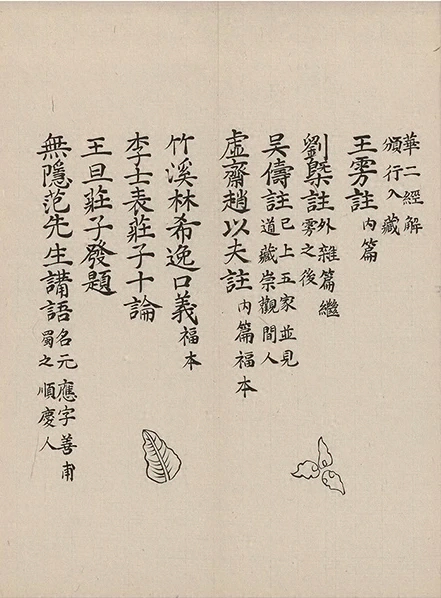 華二經解
頒行入藏
王雱註 內篇
劉槩註 外雜篇繼
雱之後
吳儔註 已上五家並見
道藏崇觀間人
虛齋趙以夫註 內篇福本
竹溪林希逸口義 福本
李士表莊子十論
王旦莊子發題
無隱范先生講語 名元應字善甫
蜀之順慶人